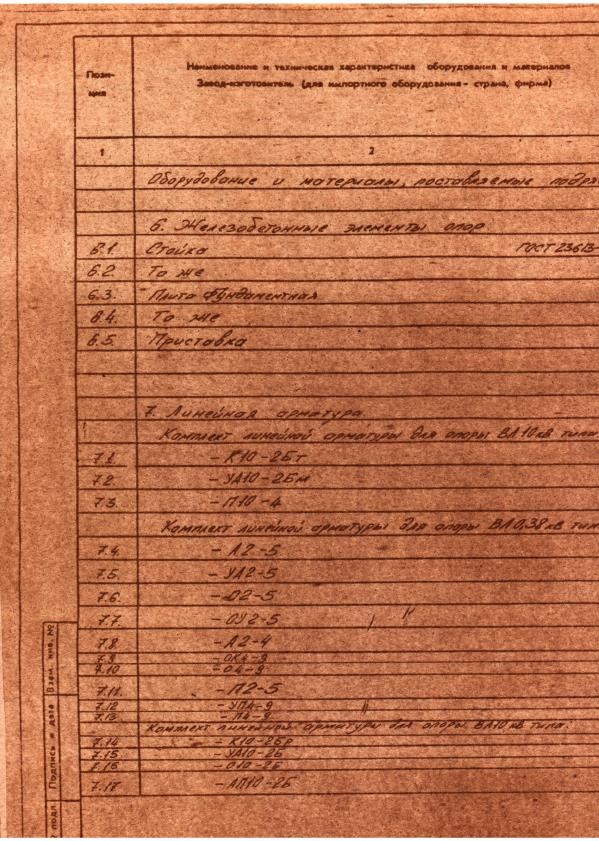 Пози-
ция
Наименование и техническая характеристика оборудования и материалов
Завод-изготовитель (для импортного оборудования - страна, фирма)
1 2
Оборудование и материалы, поставляемые подря
6. Железобетонные элементы опор
6.1. Стойка ГОСТ 23613-
6.2 То же
6.3. Плита фундаментная
6.4. То же
6.5. Приставка
7. Линейная арматура
Комплект линейной арматуры для опоры ВЛ 10 кВ типа
7.1. - К10-2Бт
7.2. - УА10-2Бм
7.3. - П10-4
Комплект линейной арматуры для опоры ВЛ 0,38 кВ тип
7.4. - К2-5
7.5. - УА2-5
7.6. - О2-5
7.7. - ОУ2-5
7.8. - А2-4
7.9 - ОК4-9
7.10 - О4-9
7.11. - П2-5
7.12 - УП4-9
7.13. - П4-9
Комплект линейной арматуры для опоры ВЛ 10 кВ типа:
7.14 - К10-2Бр
7.15 - УА10-2Б
7.16 - О10-2Б
7.17 - АП10-2Б
Взам. инв. №
Подпись и дата
подл.